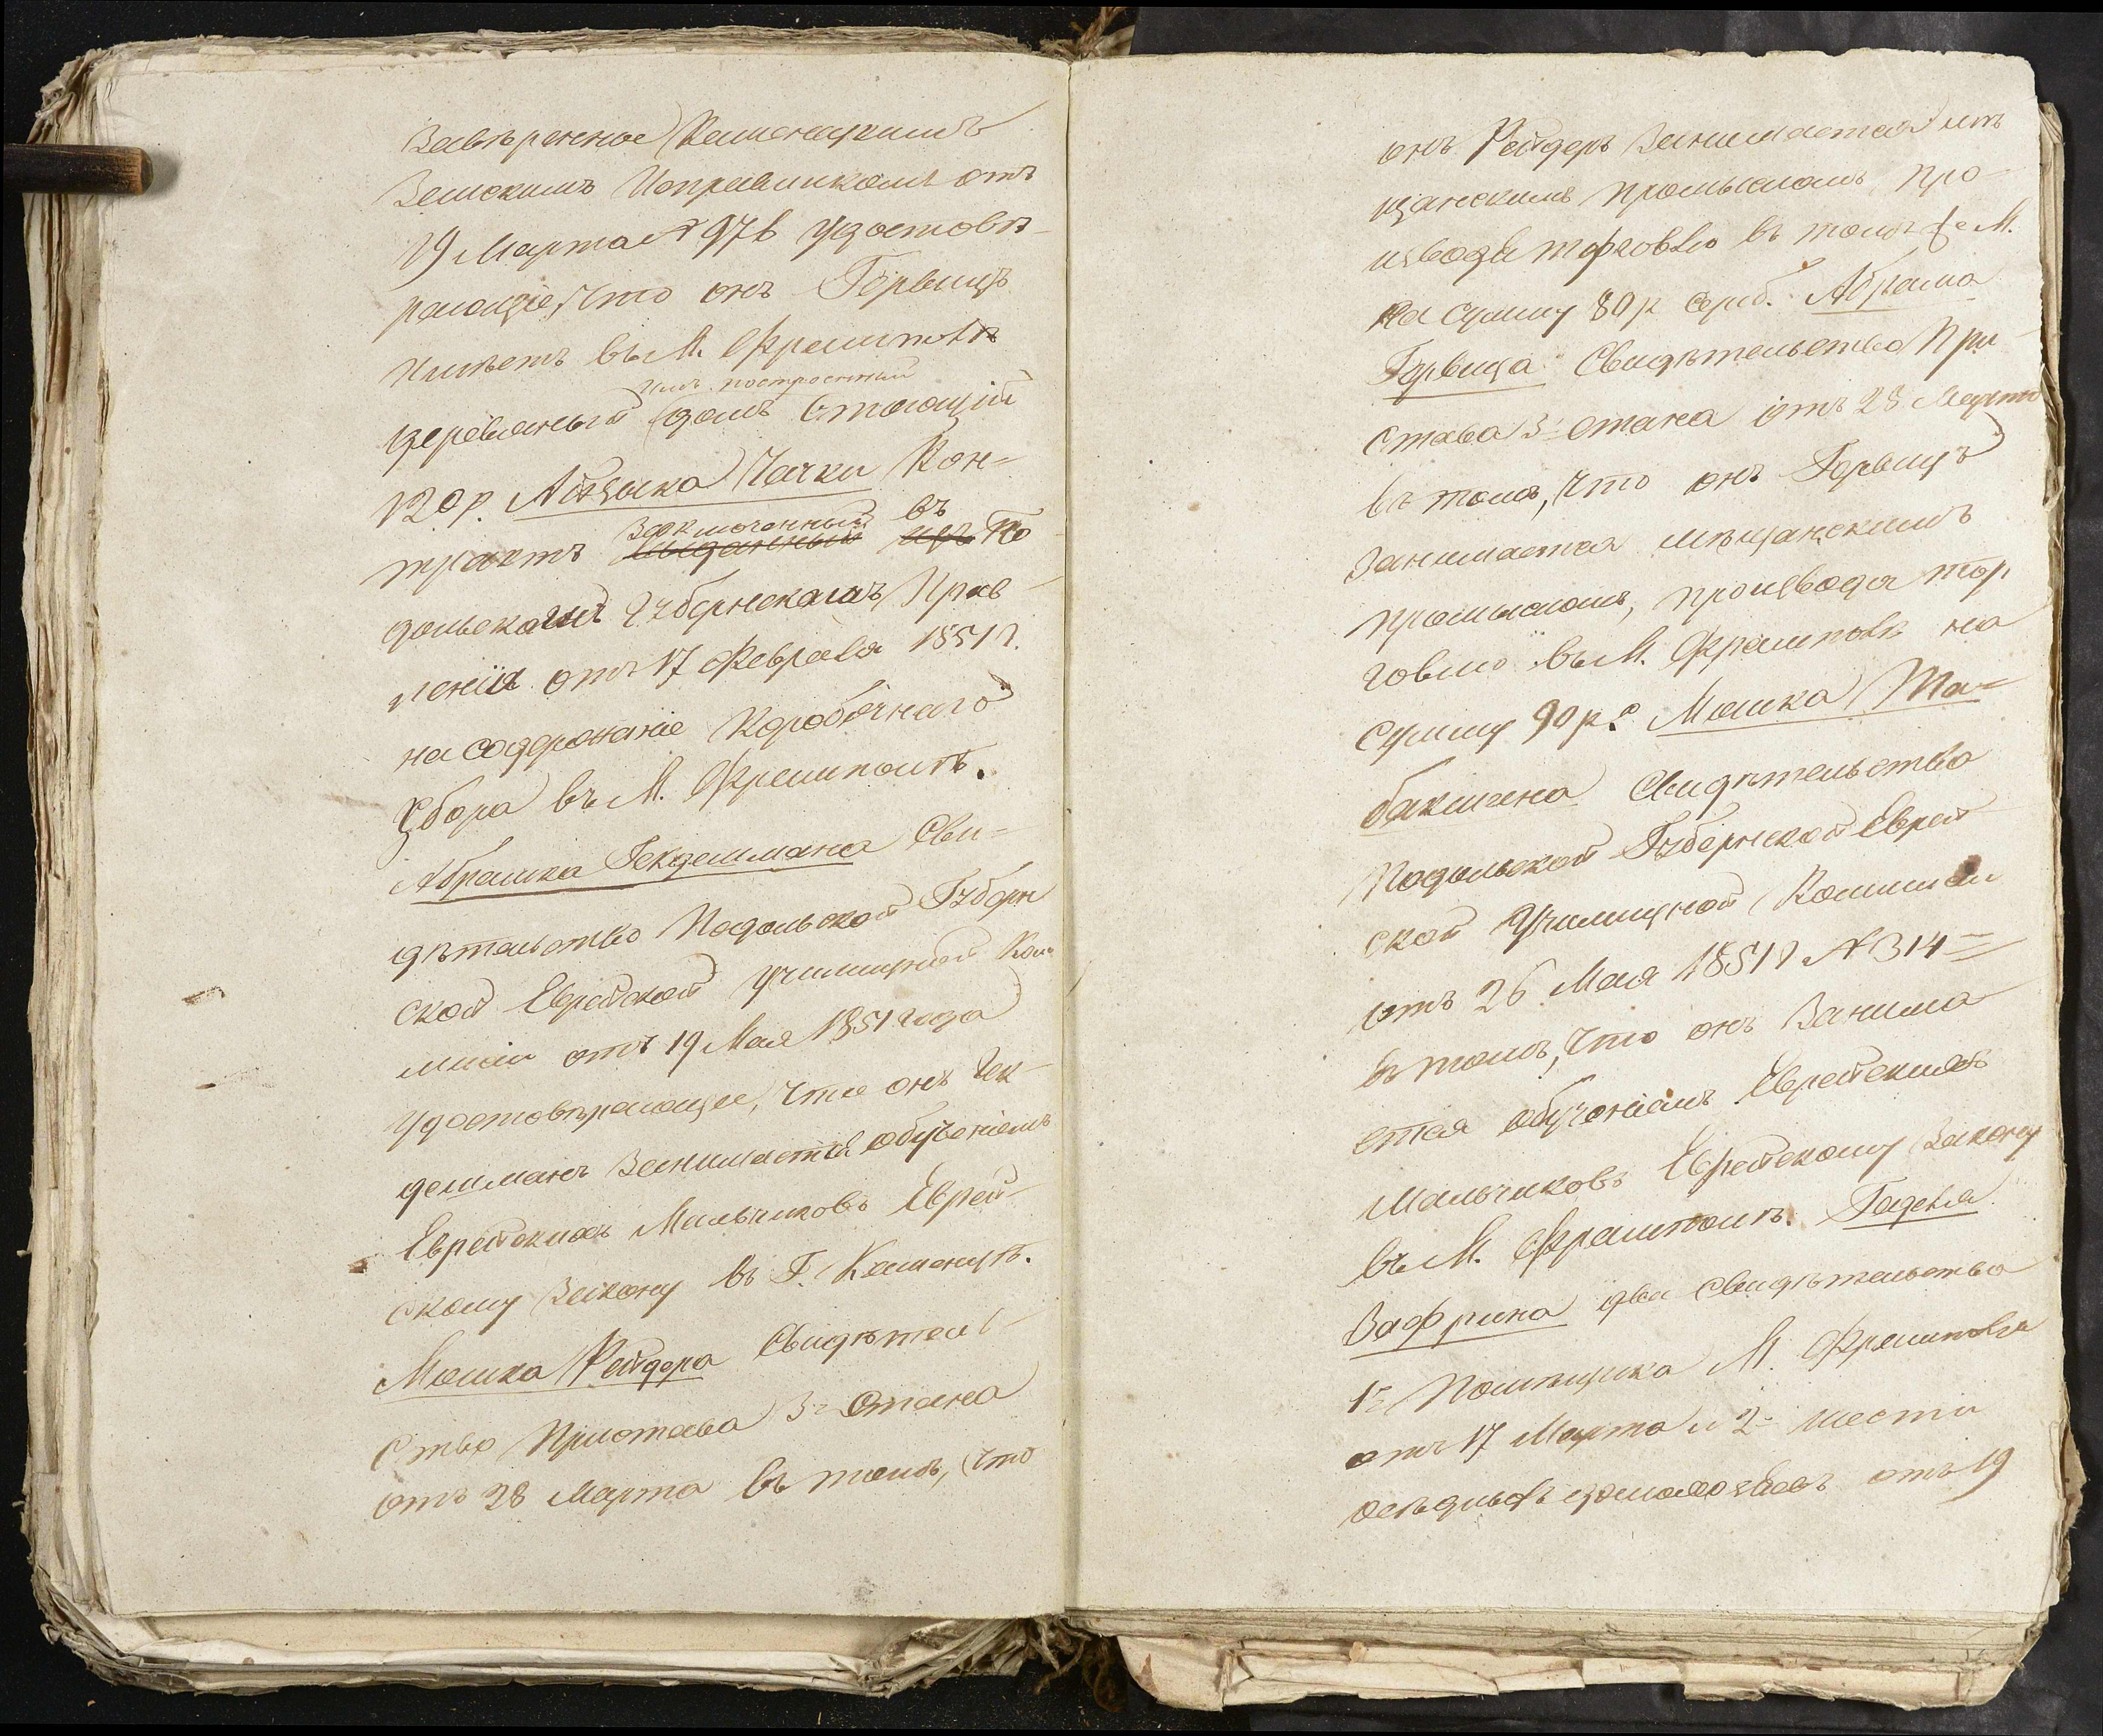 Завѣренное Каменецкимъ
Земскимъ Исправникомъ отъ
19 Марта № 976 удостовѣ-
рающіе, что онъ Горвицъ
Имѣетъ въ М. Фрамполѣ
имъ построенный
деревяный домъ Стоющій
120 р. Айзыка Чачки Кон-
Заключенный въ
трактъ выданный изъ По
дольскомъ Губернскомъ Прав-
леніи отъ 17 Февраля 1851 г.
на содержаніе Коробочнаго
Збора въ М. Фрамполѣ.
Абрамка Гекдешмана Сви-
дѣтельство Подольской Губерн
ской Еврейской училищной Ком
мисіи отъ 19 Мая 1851 года
удостовѣрающее, что онъ Гек-
дешманъ Занимается обученіемъ
Еврейскихъ Мальчиковъ Еврей-
скому Закону въ Г. Каменцѣ.
Мошка Рейдера Свидѣтель-
ство Пристава 3г Стана
отъ 28 Марта въ томъ, что
онъ Рейдеръ Занимается мѣ
щанскимъ промысломъ про-
изводя торговлю въ томъ же М.
на сумму 80 р сереб. Абрама
Горвица Свидѣтельство При-
става 3г стана отъ 28 Марта
въ томъ, что онъ Горвицъ
Занимается мѣщанскимъ
промысломъ, производя тор
говлю въ М. Фрамполѣ на
Сумму 90 р. с Мошка Та-
бакмана Свидѣтельство
Подольской Губернской Еврей
ской Училищной Коммисіи
отъ 26 Мая 1851 г № 314
въ томъ, что онъ Занима
ется обученіемъ Еврейскихъ
Мальчиковъ Еврейскому Закону
въ М. Фрамполѣ.
Зафрина два свидѣтельства
1е Помѣщика М. Фрамполя
отъ 17 Марта и 2е шести
осѣдлыхъ домохозяевъ отъ 19